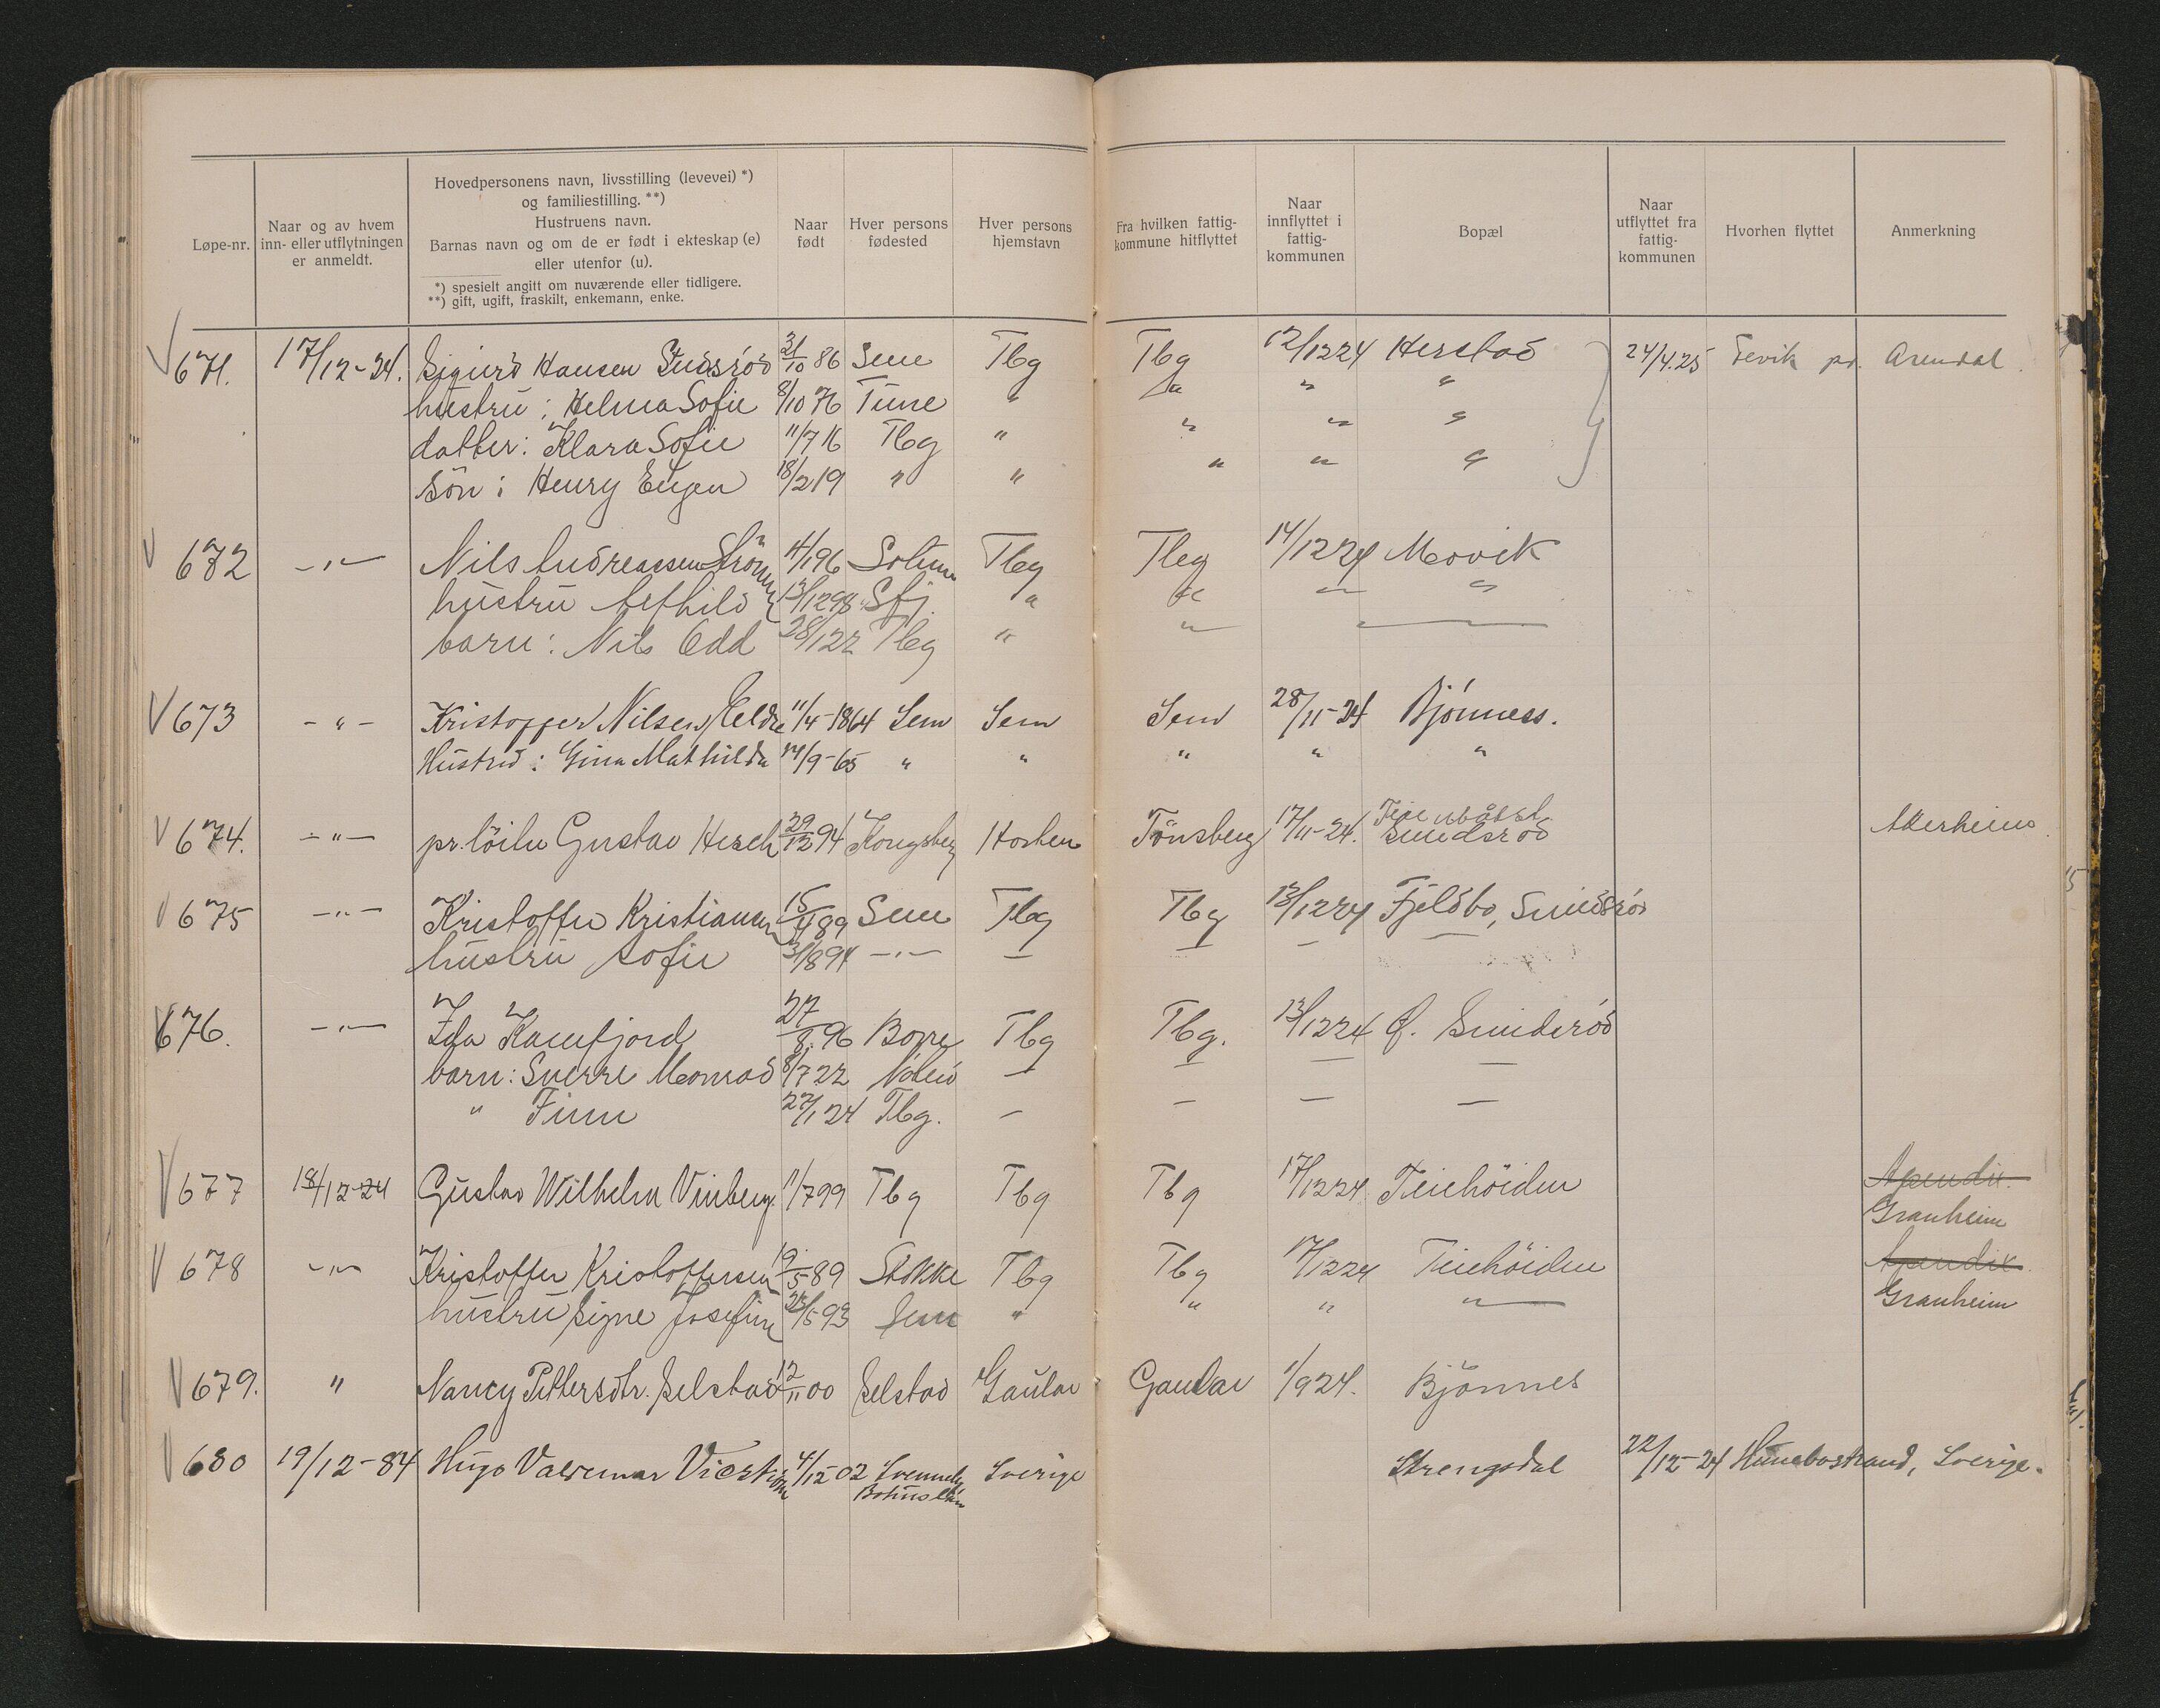 Løpe-nr. Naar og av hvem inn- eller utflytningen er anmeldt. Hovedpersonens navn, livsstilling (levevei) *) og familiestilling. **) Hustruens navn. Barnas navn og om de er født i ekteskap (e) eller utenfor (u). Naar født Hver persons fødested Hver persons hjemstavn Fra hvilken fattig-kommune hitflyttet Naar innflyttet i fattig-kommunen Bopæl Naar utflyttet fra fattig-kommunen Hvorhen flyttet Anmerkning
*) spesielt angitt om nuværende eller tidligere.
**) gift, ugift, fraskilt, enkemann, enke.
671. 17/12-24. Sigurd Hansen 31/10 86 Sem Tbg Tbg 12/12 24 Herstad 24/4.25 Fevik pr. Arendal.
hustru: Helma Sofie 8/10 76 Tune " " " "
datter: Klara Sofie 11/7 16 Tbg " " " "
sön: Henry Eugen 18/2 19 " " " " "
672 -"- Nils Andreassen 4/1 96 Solum Tbg Tbg 14/12 24 Movik
hustru 13/12 98 Sfj. " " " "
barn: Nils Odd 28/1 22 Tbg " "
673 -"- Kristoffer Nilsen Eldre 11/4-1864 Sem Sem Sem 28/11-24 Bjönness.
Hustru: Gina Mathilda 14/9-65 " " " " "
674. -"- pr.löitn Gustav Hersch 29/12 94 Kongsberg Horten Tönsberg 17/11-24. Smidsröd Akerheim.
675 -"- Kristoffer Kristiansen 15/11 89 Sem Tbg Tbg 13/12 24 Fjeldbo, Smidsröd
hustru Sofie 31/8 94 -"- — — — —
676. -"- Ida Kamfjord 27/8. 96 Borre Tbg Tbg. 13/12 24 Ø. Smidsröd
barn: Sverre Monrad 8/7 22 — — — —
" Finn 27/1 24 Tbg. — — — —
677 18/12-24 Gustav Wilhelm Vinberg. 11/7 99 Tbg Tbg Tbg 17/12 24 Teiehöiden Apendix.
Granheim
678 -"- Kristoffer Kristoffersen 19/5 89 Stokke Tbg Tbg 17/12 24 Teiehöiden Apendix.
hustru Signe Josefine /5 93 Sem " " " " Granheim
679. " Nancy Pettersdtr. Selstad 12/11 00 Selstad Gaular Gaular 1/9 24. Bjönnes
680 19/12-84 Hugo Valdemar 4/12 02 Sverige Strengsdal 22/12-24 Hunebostrand, Sverige.
Bohuslän